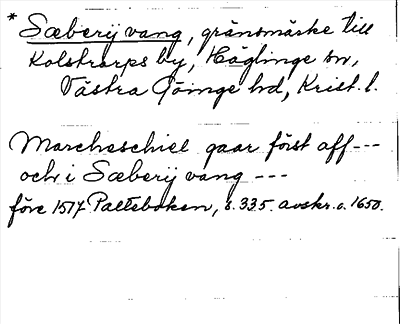 * Sæberÿ vang, gränsmärke till
Kolstrarps by, Häglinge sn,
Västra Göinge hd, Krist. l.
Marcheschiel gaar först aff ---
och i Sæberÿ vang ---
före 1517 Palteboken, s. 335. avskr. c. 1650.